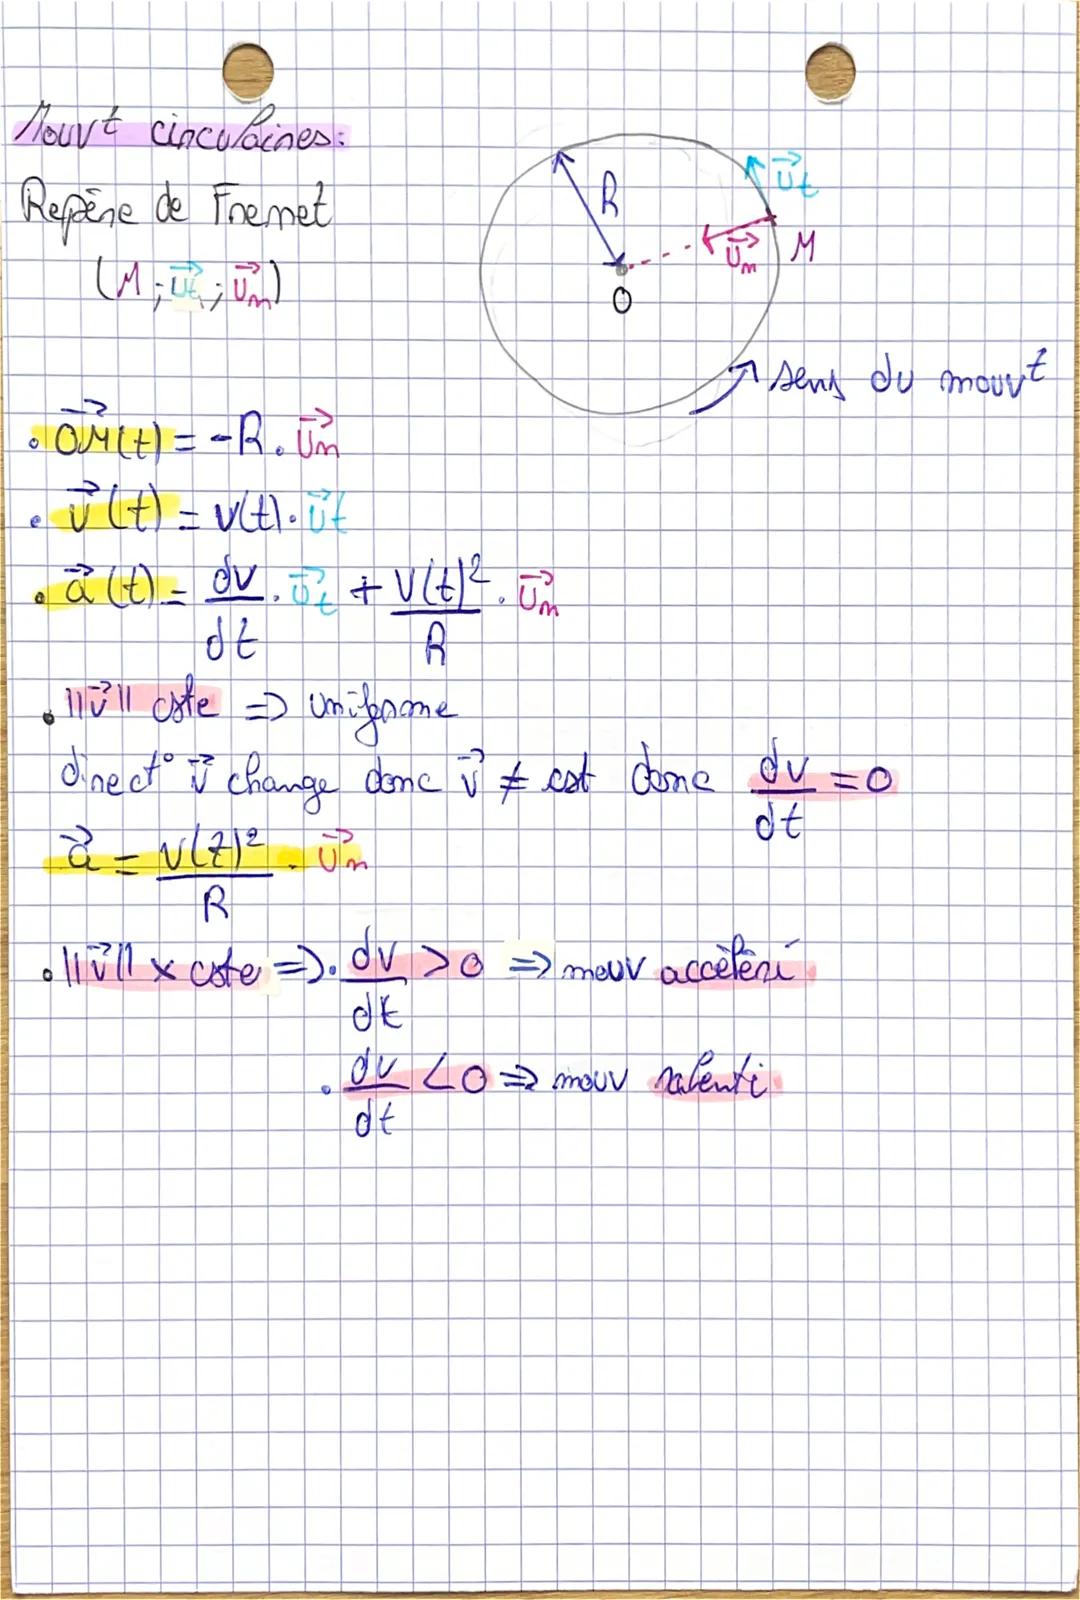 Mouvt circulaires:
Repère de Frenet
(M ; ut ; un)
R
ut
un
M
O
sens du mouvt
• OM(t) = -R . un
• v(t) = v(t) . ut
• a(t) = dv/dt . ut + v(t)²/R . un
• ||v|| cste => uniforme
direct° v change donc v ≠ cst donc dv/dt = 0
a = v(t)²/R . un
• ||v|| x cste => • dv/dt > 0 => mouv accéléré
• dv/dt < 0 => mouv ralenti